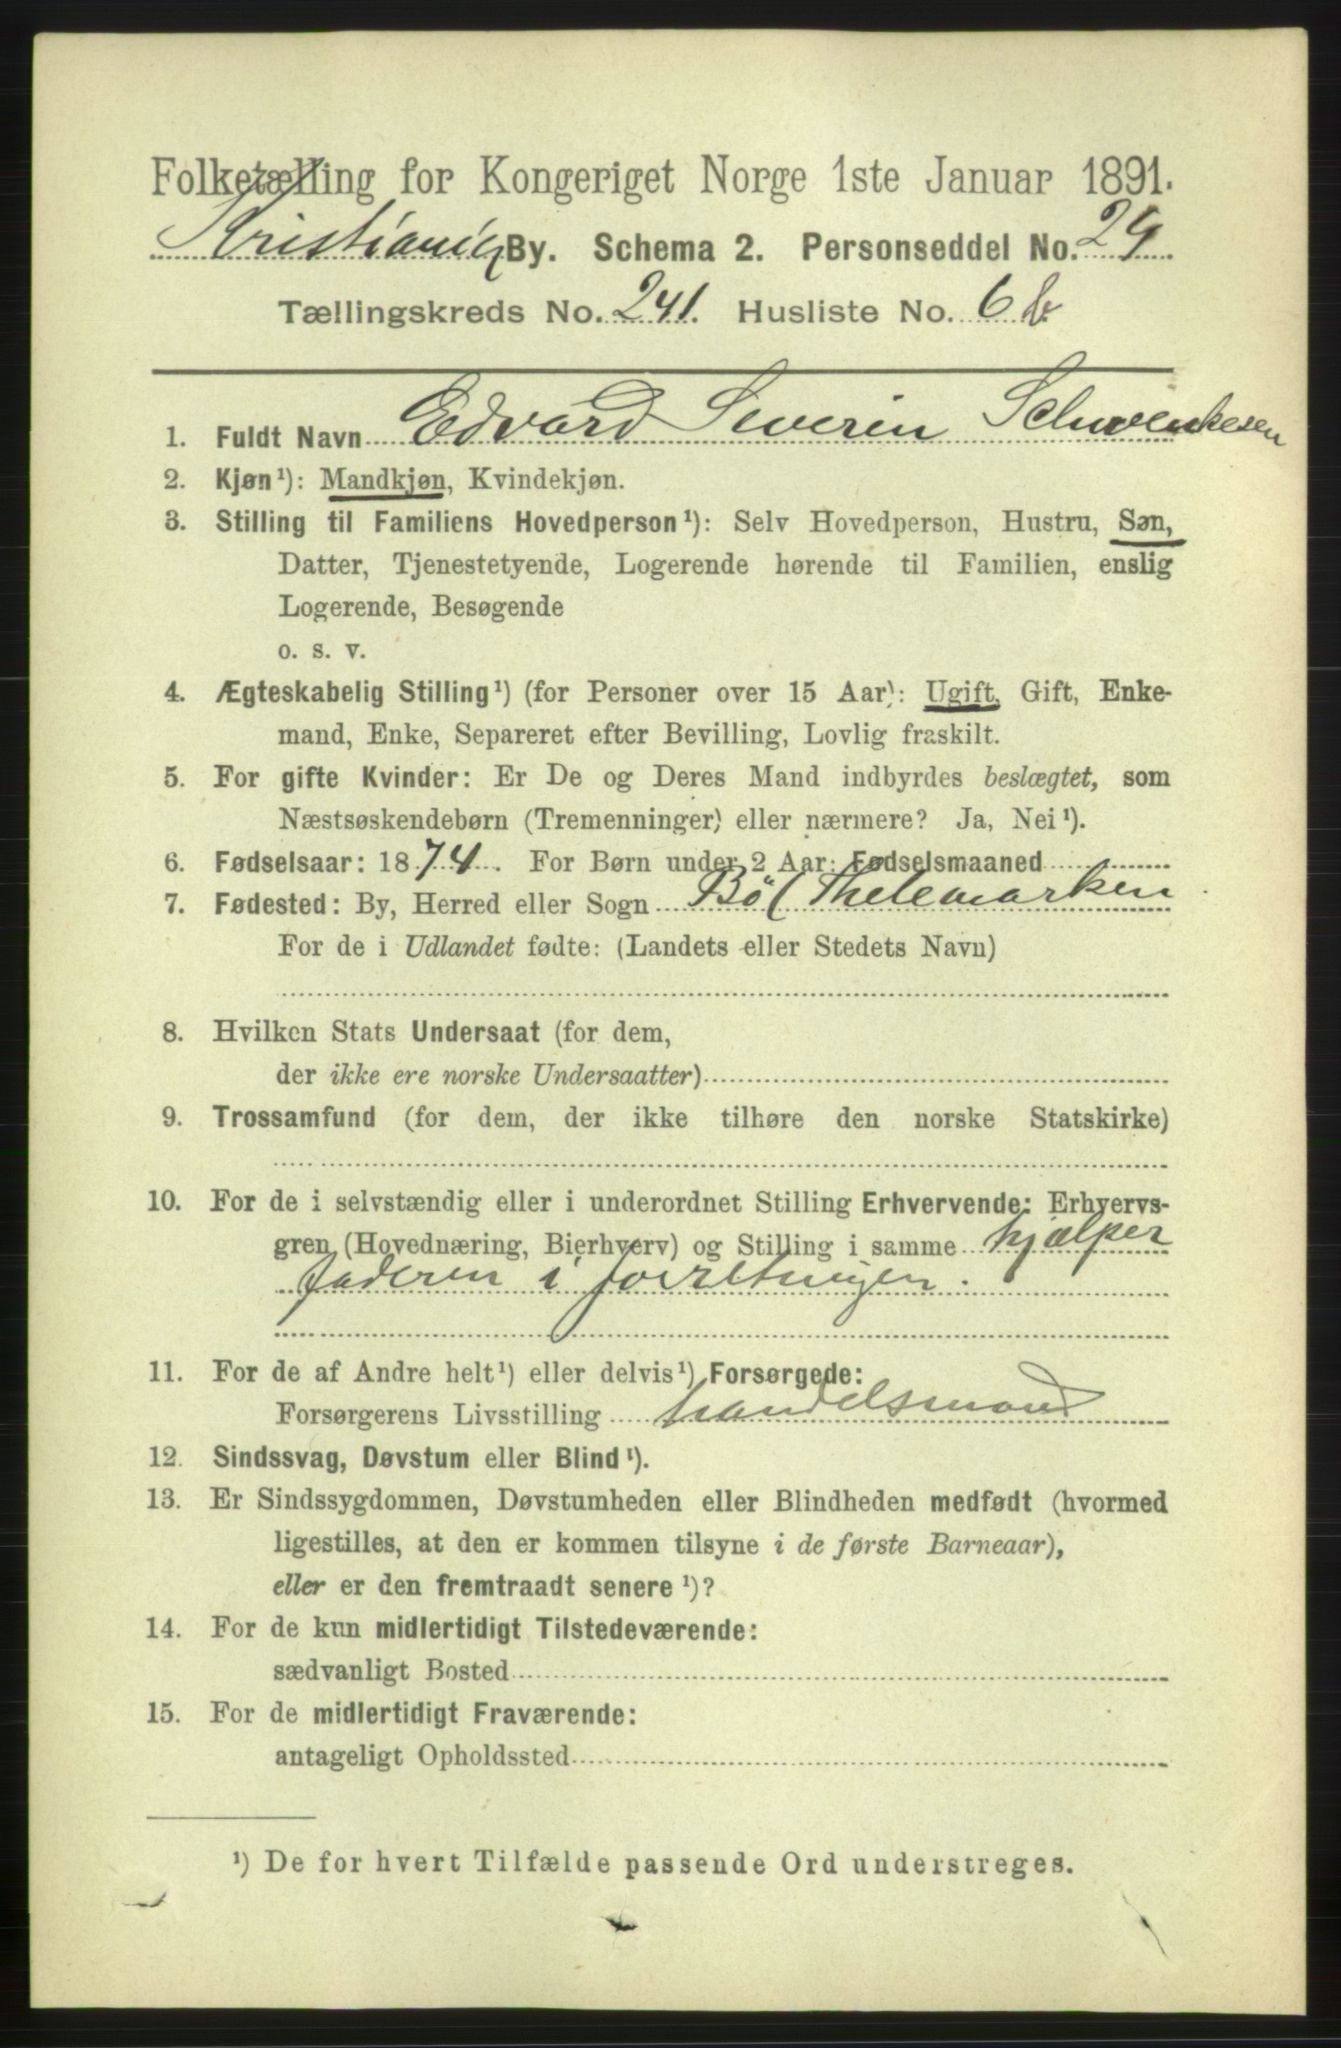 Folketælling for Kongeriget Norge 1ste Januar 1891.
Kristiania By. Schema 2. Personseddel No. 29
Tællingskreds No. 241. Husliste No. 6 b.
1. Fuldt Navn Edvard Severin Schwenkesen
2. Kjøn¹): Mandkjøn, Kvindekjøn.
3. Stilling til Familiens Hovedperson¹): Selv Hovedperson, Hustru, Søn,
Datter, Tjenestetyende, Logerende hørende til Familien, enslig
Logerende, Besøgende
o. s. v.
4. Ægteskabelig Stilling¹) (for Personer over 15 Aar): Ugift, Gift, Enke-
mand, Enke, Separeret efter Bevilling, Lovlig fraskilt.
5. For gifte Kvinder: Er De og Deres Mand indbyrdes beslægtet, som
Næstsøskendebørn (Tremenninger) eller nærmere? Ja, Nei¹).
6. Fødselsaar: 1874. For Børn under 2 Aar: Fødselsmaaned
7. Fødested: By, Herred eller Sogn Bö ( Thelemarken
For de i Udlandet fødte: (Landets eller Stedets Navn)
8. Hvilken Stats Undersaat (for dem,
der ikke ere norske Undersaatter)
9. Trossamfund (for dem, der ikke tilhøre den norske Statskirke)
10. For de i selvstændig eller i underordnet Stilling Erhvervende: Erhvervs-
gren (Hovednæring, Bierhverv) og Stilling i samme hjælper
faderen i forretningen.
11. For de af Andre helt¹) eller delvis¹) Forsørgede:
Forsørgerens Livsstilling handelsmand
12. Sindssvag, Døvstum eller Blind¹).
13. Er Sindssygdommen, Døvstumheden eller Blindheden medfødt (hvormed
ligestilles, at den er kommen tilsyne i de første Barneaar),
eller er den fremtraadt senere¹)?
14. For de kun midlertidigt Tilstedeværende:
sædvanligt Bosted
15. For de midlertidigt Fraværende:
antageligt Opholdssted
¹) De for hvert Tilfælde passende Ord understreges.